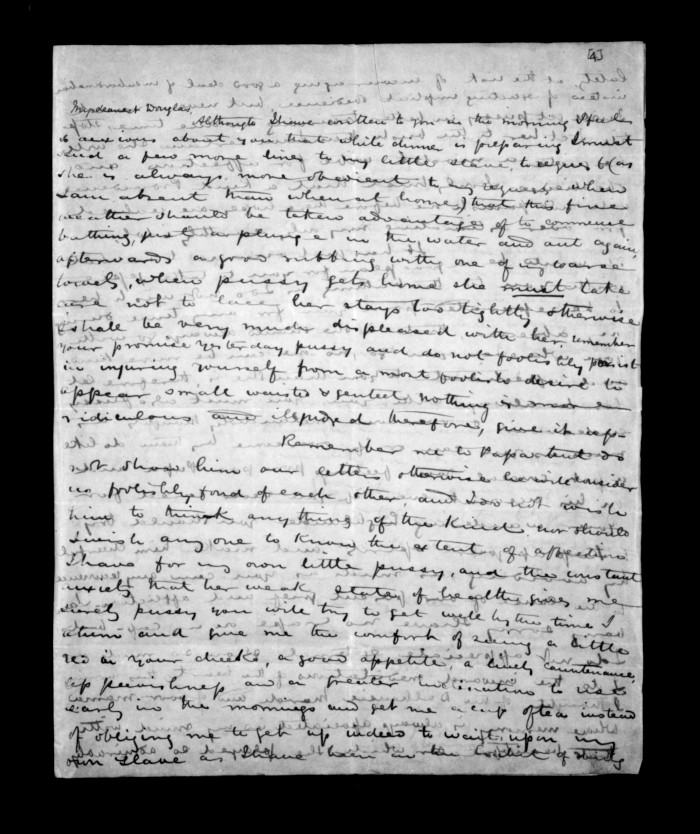 [4]
My dearest Douglas
Although I have written to you in the morning I feel
so anxious about you that while dinner is preparing I must
add a few more lines to my little slave, to request (as
she is always more obedient to my requests when
I am absent than when at home) that this fine
weather should be taken advantage of to commence
bathing, just a plunge in the water and out again,
afterwards a good rubbing with one of my coarse
towels, when pussy gets home she must take
care not to lace her stays too tightly otherwise
I shall be very much displeased with her, remember
your promise yesterday pussy and do not foolishly persist
in injuring yourself from a most foolish desire to
appear small waisted & genteel, nothing is more
ridiculous and illjudged therefore, give it up.
Remember me to Papa but do
not show him our letters otherwise he will consider
us foolishly fond of each other and I do not wish
him to think any thing of the kind nor should
I wish any one to know the extent of affection
I have for my own little pussy, and the constant
anxiety that her weak state of health gives me
surely pussy you will try to get well by the time I
return and give me the comfort of seeing a little
red in your cheeks, a good appetite, a lively countenance,
less peevishness and a greater inclination to rise
early in the mornings and get me a cup of tea instead
of obliging me to get up indeed to wait upon my
own slave as I have been in the habit of doing